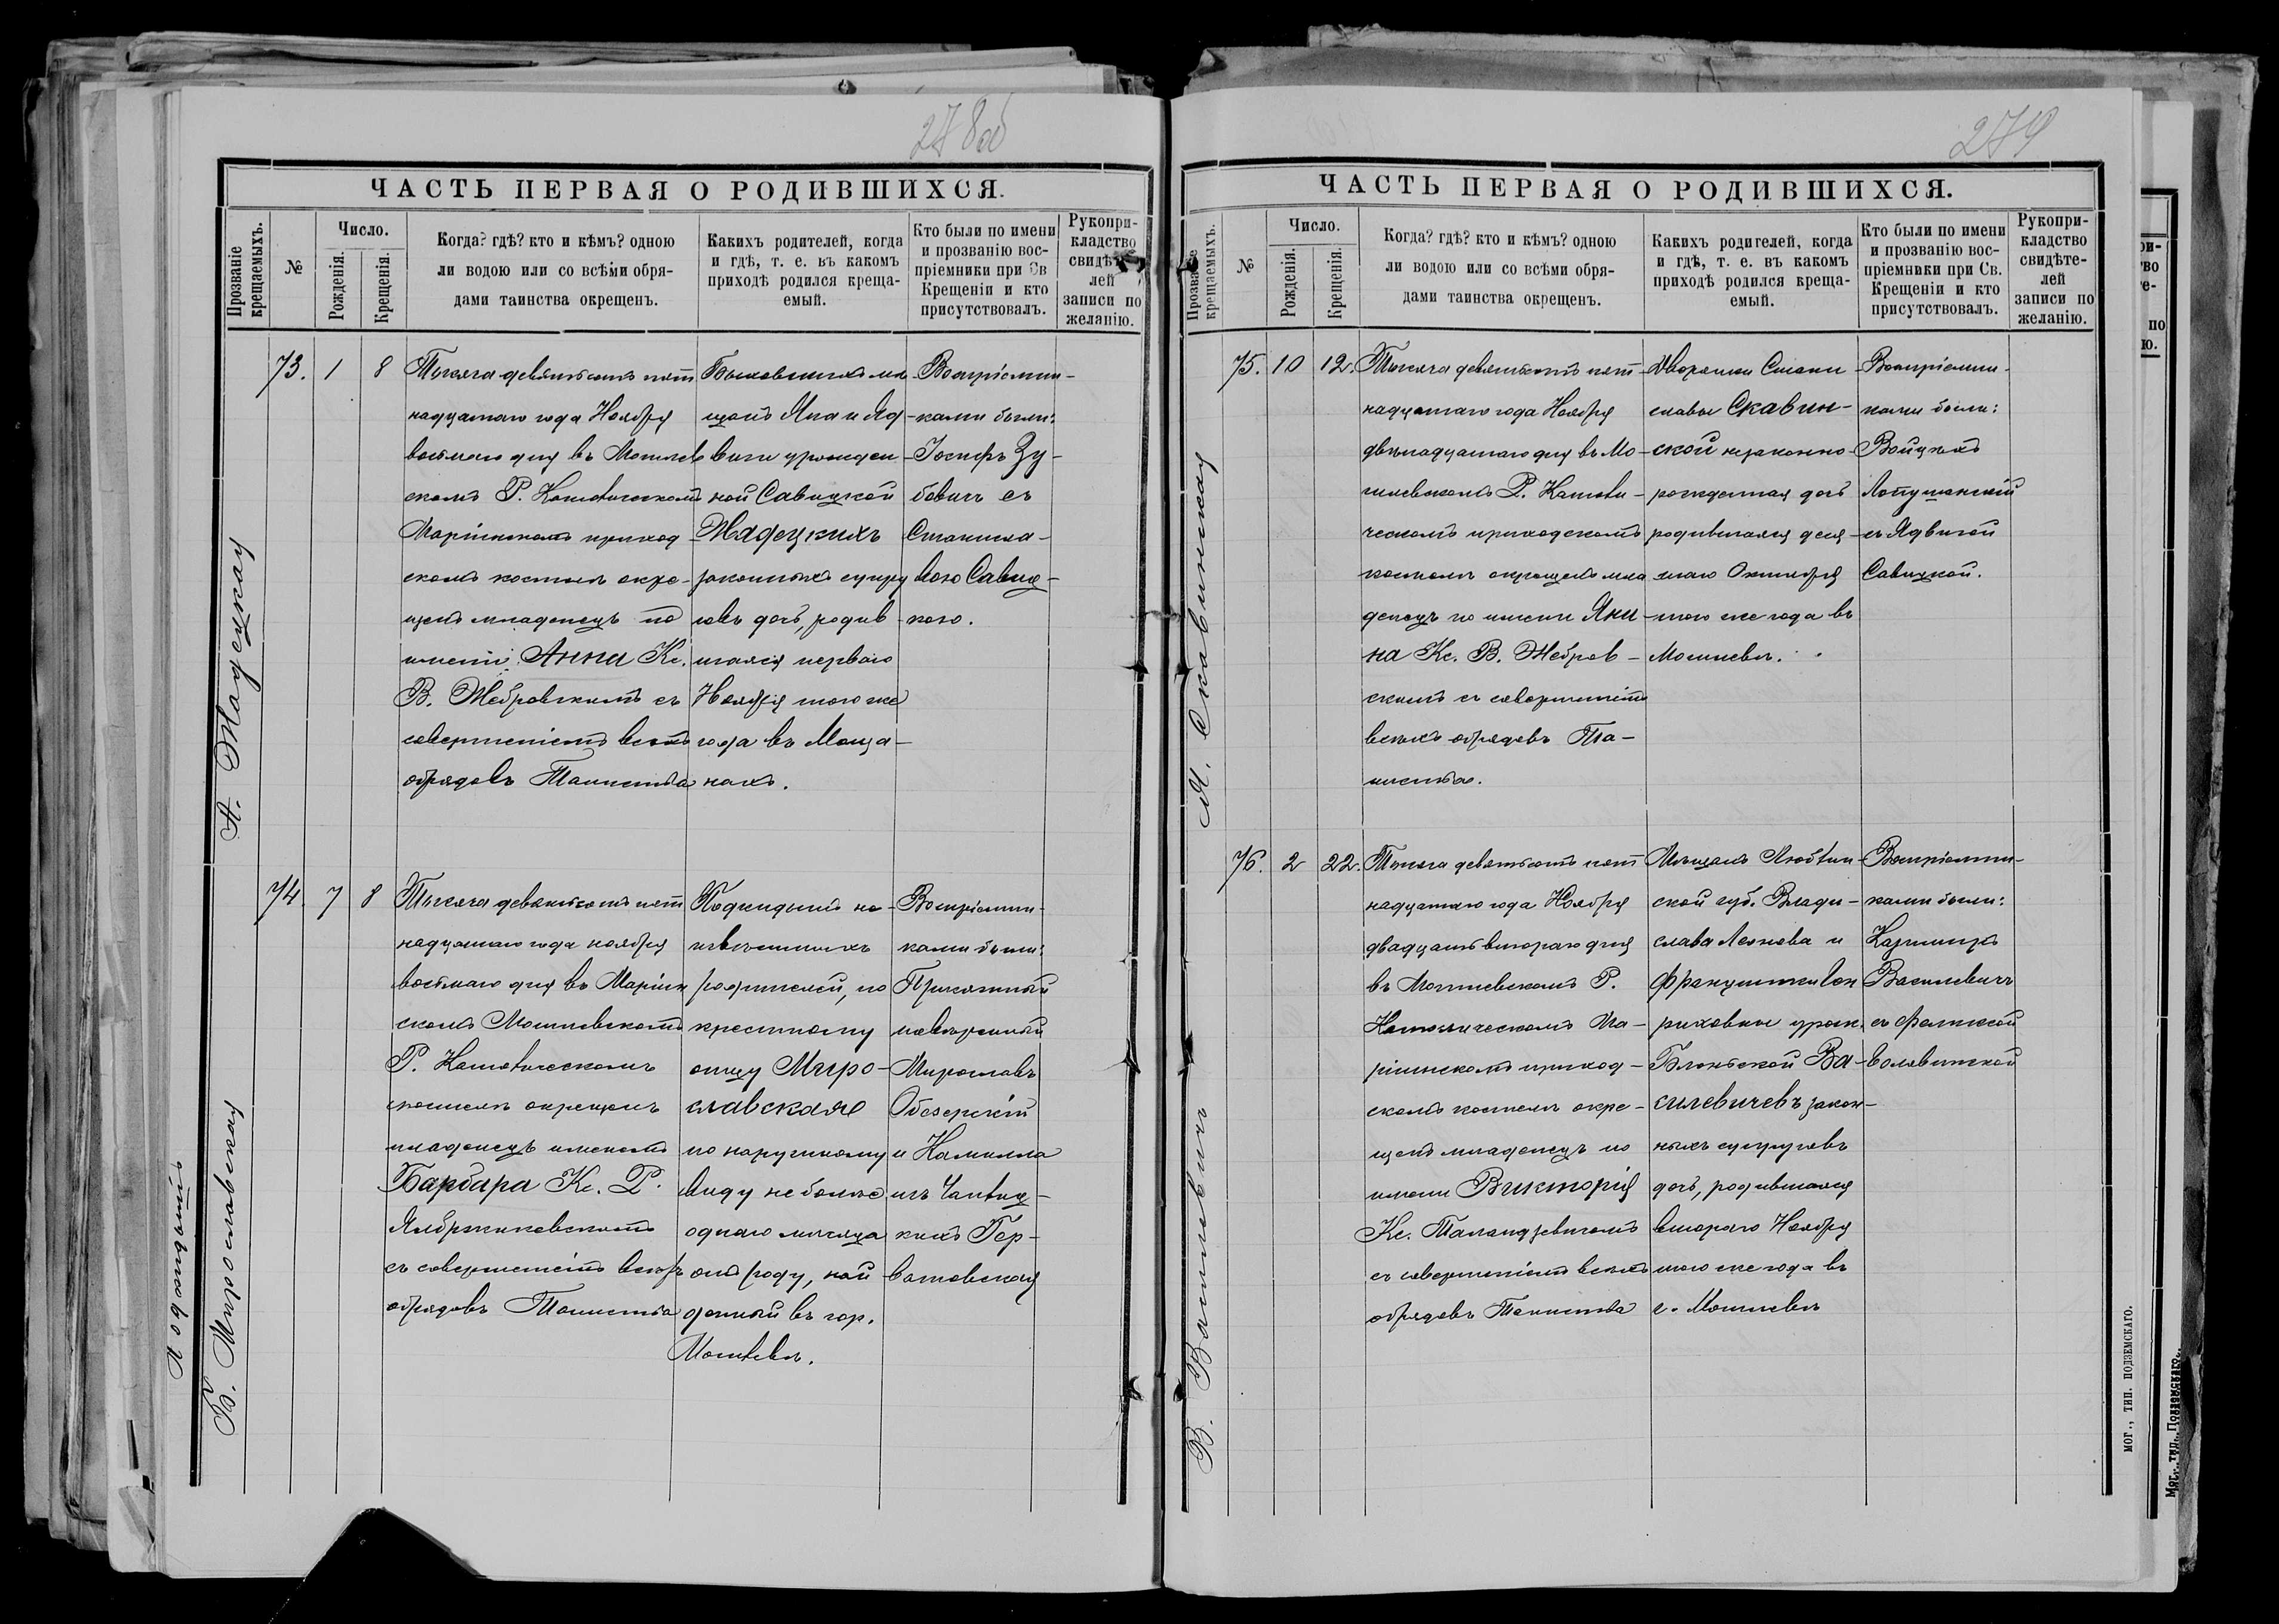 278об
ЧАСТЬ ПЕРВАЯ О РОДИВШИХСЯ.
Прозваніе крещаемыхъ.
№
Число.
Рожденія.
Крещенія.
Когда? гдѣ? кто и кѣмъ? одною
ли водою или со всѣми обря-
дами таинства окрещенъ.
Какихъ родителей, когда
и гдѣ, т. е. въ какомъ
приходѣ родился креща-
емый.
Кто были по имени
и прозванію вос-
пріемники при Св
Крещеніи и кто
присутствовалъ.
Рукопри-
кладство
свидѣте-
лей
записи по
желанію.
А. Жадецкая
73. 1 8
Тысяча девятьсотъ пят
надцатаго года Ноября
восьмаго дня въ Могилев
скомъ Р. Католическомъ
Маріинскомъ приход
скомъ костелѣ окре-
щенъ младенецъ по
имени Анна Кс.
В. Жебровскимъ съ
совершеніемъ всѣхъ
обрядовъ Таинства
Быховскихъ мѣ
щанъ Яна и Яд
виги урожден
ной Савицкой
Жадецкихъ
законныхъ супру
говъ дочь, родив
шаяся перваго
Ноября того же
года въ
нахъ.
Воспріемни-
ками были:
Іосифъ Зу-
бовичъ съ
Станисла-
вою Савиц-
кою.
Подкидышъ
Б. Мирославская
74. 7 8
Тысяча девятьсотъ пят
надцатаго года ноября
восьмаго дня въ Маріин
скомъ Могилевскомъ
Р. Католическомъ
костелѣ окрещенъ
младенецъ именемъ
Барбара Кс. Р.
Ялбржиковскимъ
съ совершеніемъ всѣхъ
обрядовъ Таинства
Подкидышъ не
извѣстныхъ
родителей, по
крестному
отцу Миро-
славская
по наружному
виду не болѣе
одного мѣсяца
отъ роду, най
денный въ гор.
Могилевѣ.
Воспріемни-
ками были:
Присяжный
повѣренный
Мирославъ
Обезерскій
и Камилла
изъ Чаплиц-
кихъ Гер-
ватовская
279
ЧАСТЬ ПЕРВАЯ О РОДИВШИХСЯ.
Прозваніе крещаемыхъ.
№
Число.
Рожденія.
Крещенія.
Когда? гдѣ? кто и кѣмъ? одною
ли водою или со всѣми обря-
дами таинства окрещенъ.
Какихъ родителей, когда
и гдѣ, т. е. въ какомъ
приходѣ родился креща-
емый.
Кто были по имени
и прозванію вос-
пріемники при Св.
Крещеніи и кто
присутствовалъ.
Рукопри-
кладство
свидѣте-
лей
записи по
желанію.
Я. Скавинская
75. 10 12.
Тысяча девятьсотъ пят
надцатаго года Ноября
двѣнадцатаго дня въ Мо-
гилевскомъ Р. Католи-
ческомъ приходскомъ
костелѣ окрещенъ мла
денецъ по имени Яни
на Кс. В. Жебров-
скимъ съ совершеніемъ
всѣхъ обрядовъ Та-
инства.
Дворянки Стани
славы Скавин-
ской незаконно-
рожденная дочь
родившаяся деся-
таго Октября
того же года въ
Могилевѣ.
Воспріемни-
ками были:
Войцѣхъ
Лопушанскій
съ Ядвигой
Савицкой.
В. Василевичъ
76. 2 22.
Тысяча девятьсотъ пят
надцатаго года Ноября
двадцать втораго дня
въ Могилевскомъ Р.
Католическомъ Ма-
ріинскомъ приход-
скомъ костелѣ окре-
щенъ младенецъ по
имени Викторія
Кс. Таландзевичемъ
съ совершеніемъ всѣхъ
обрядовъ Таинства
Мѣщанъ Люблин
ской губ. Влади-
слава Леонова и
Францишки Ген
риховны урож.
Блонской Ва-
силевичевъ закон-
ныхъ супруговъ
дочь, родившаяся
втораго Ноября
того же года въ
г. Могилевѣ
Воспріемни-
ками были:
Казимиръ
Василевичъ
съ Феликсой
МОГ., ТИП. ПОДЗЕМСКАГО.